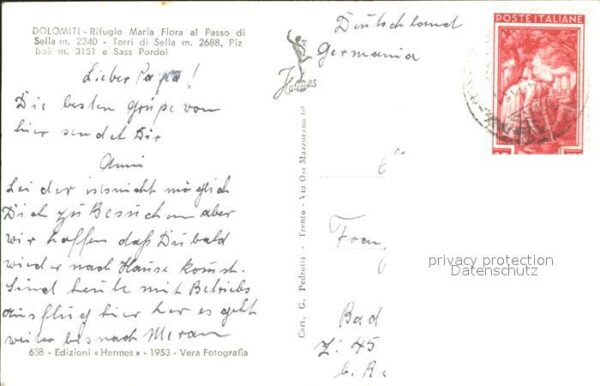 DOLOMITI - Rifugio Maria Flora al Passo di
Sella m. 2240 - Torri di Sella m. 2688, Piz
Boè m. 3151 e Sass Pordoi
Lieber Papa!
Die besten Grüße von
hier sendet Dir
Anni
Leider ist's nicht möglich
Dich zu Besuchen aber
wir hoffen daß Du bald
wieder nach Hause kommst.
Sind heute mit Betriebs
ausflug hier her es geht
weiter bis nach Meran
658 - Edizioni «Hermes» - 1953 - Vera Fotografia
Hermes
Cart. G. Pedrotti - Trento - Via Oss Mazzurana
Deutschland
Germania
POSTE ITALIANE
Bad
Z: 45
privacy protection
Datenschutz